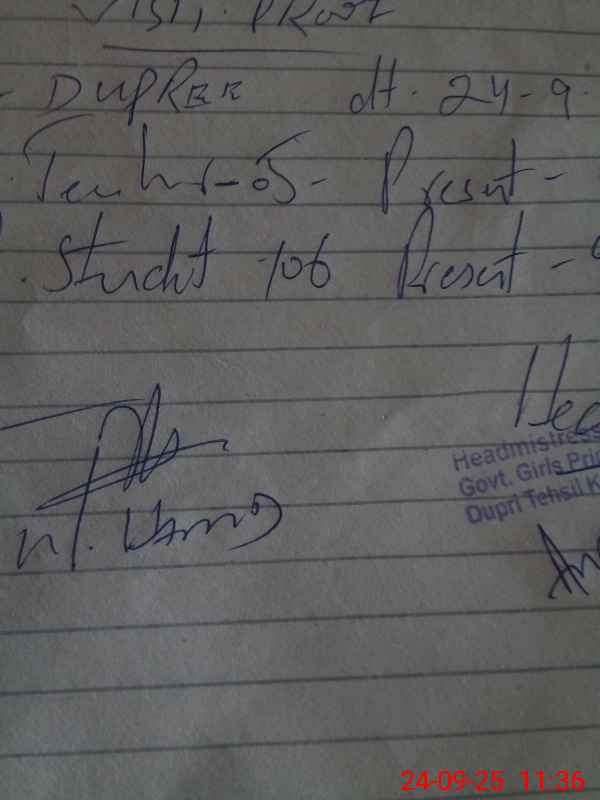 VISIT. PROOF
- DUPREE dt. 24-9.
Teachr-05- Present-
Student 106 Present -
Hea
Headmistress
Govt. Girls Pri
Dupri Tehsil K
24-09-25 11:36